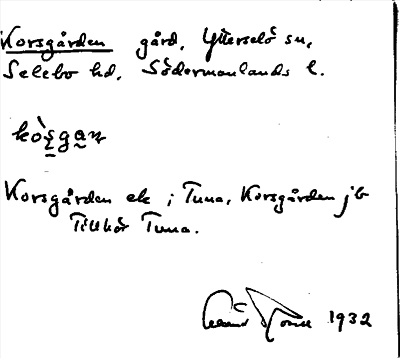 Korsgården gård, Ytterselö sn,
Selebo hd, Södermanlands l.
kòșgaṇ
Korsgården ek i Tuna, Korsgården jb
Tillhör Tuna.
1932